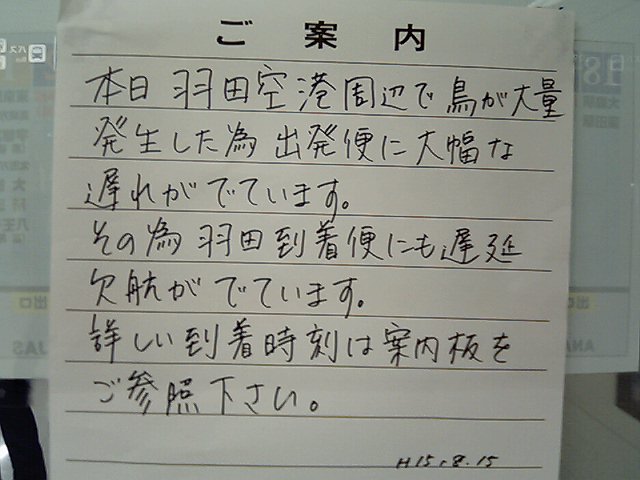 ご案内
本日 羽田空港周辺で鳥が大量
発生した為 出発便に大幅な
遅れがでています。
その為 羽田到着便にも遅延
欠航がでています。
詳しい到着時刻は案内板を
ご参照下さい。
H15.8.15